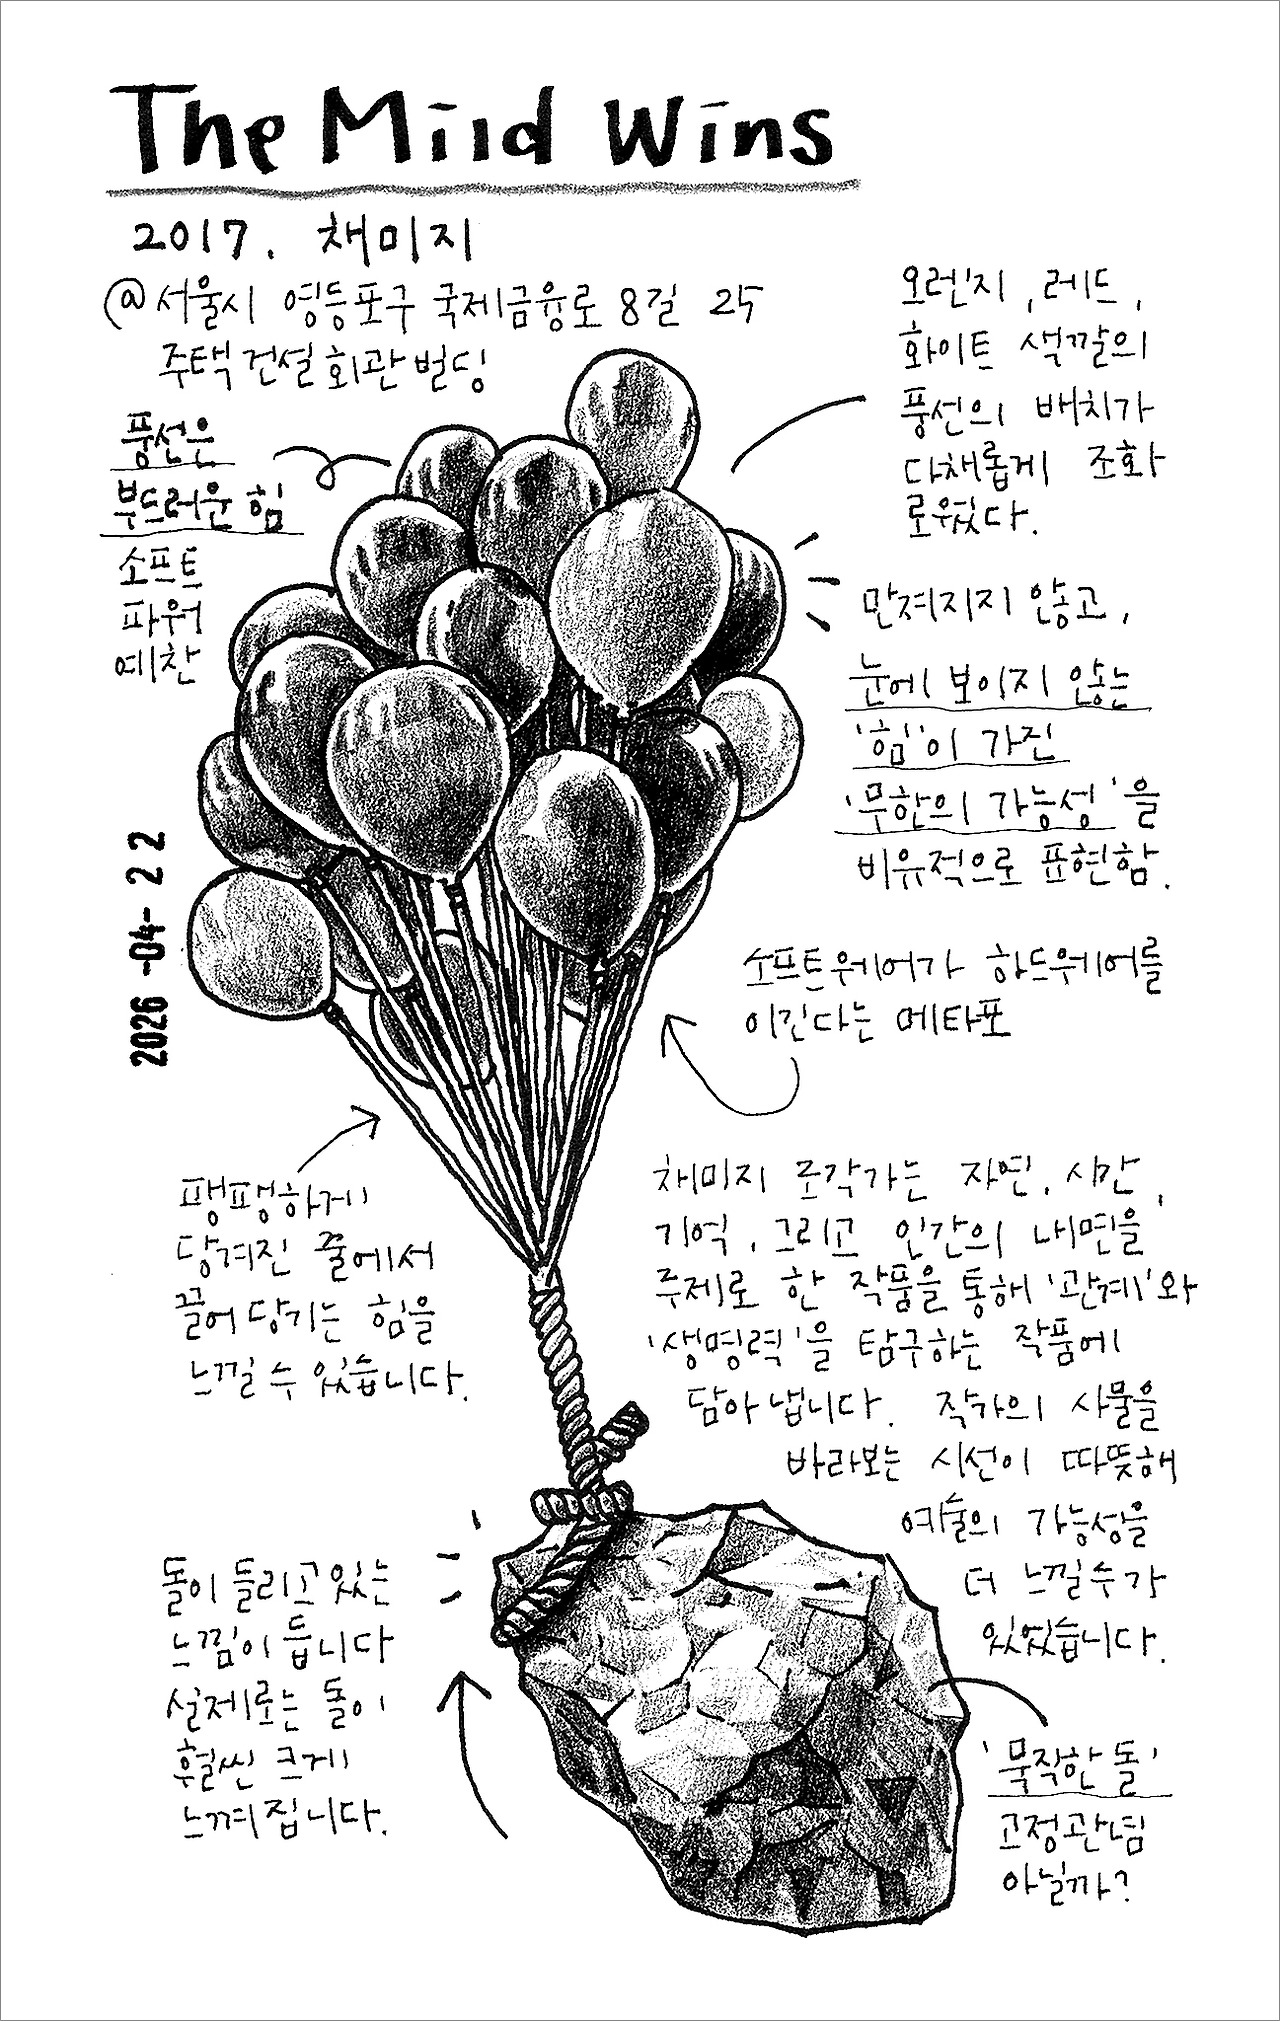 The Mild Wins
2017. 채미지
@서울시 영등포구 국제금융로 8길 25
주택건설회관빌딩
풍선은
부드러운 힘
소프트
파워
예찬
오렌지, 레드,
화이트 색깔의
풍선의 배치가
다채롭게 조화
로웠다.
만져지지 않고,
눈에 보이지 않는
'힘'이 가진
'무한의 가능성'을
비유적으로 표현함.
2026 -04- 2 2
소프트웨어가 하드웨어를
이긴다는 메타포
팽팽하게
당겨진 줄에서
끌어당기는 힘을
느낄 수 있습니다.
채미지 조각가는 자연, 시간,
기억, 그리고 인간의 내면을
주제로 한 작품을 통해 '관계'와
'생명력'을 탐구하는 작품에
담아 냅니다. 작가의 사물을
바라보는 시선이 따뜻해
예술의 가능성을
더 느낄수가
있었습니다.
돌이 들리고 있는
느낌이 듭니다
실제로는 돌이
훨씬 크게
느껴집니다.
'묵직한 돌'
고정관념
아닐까?